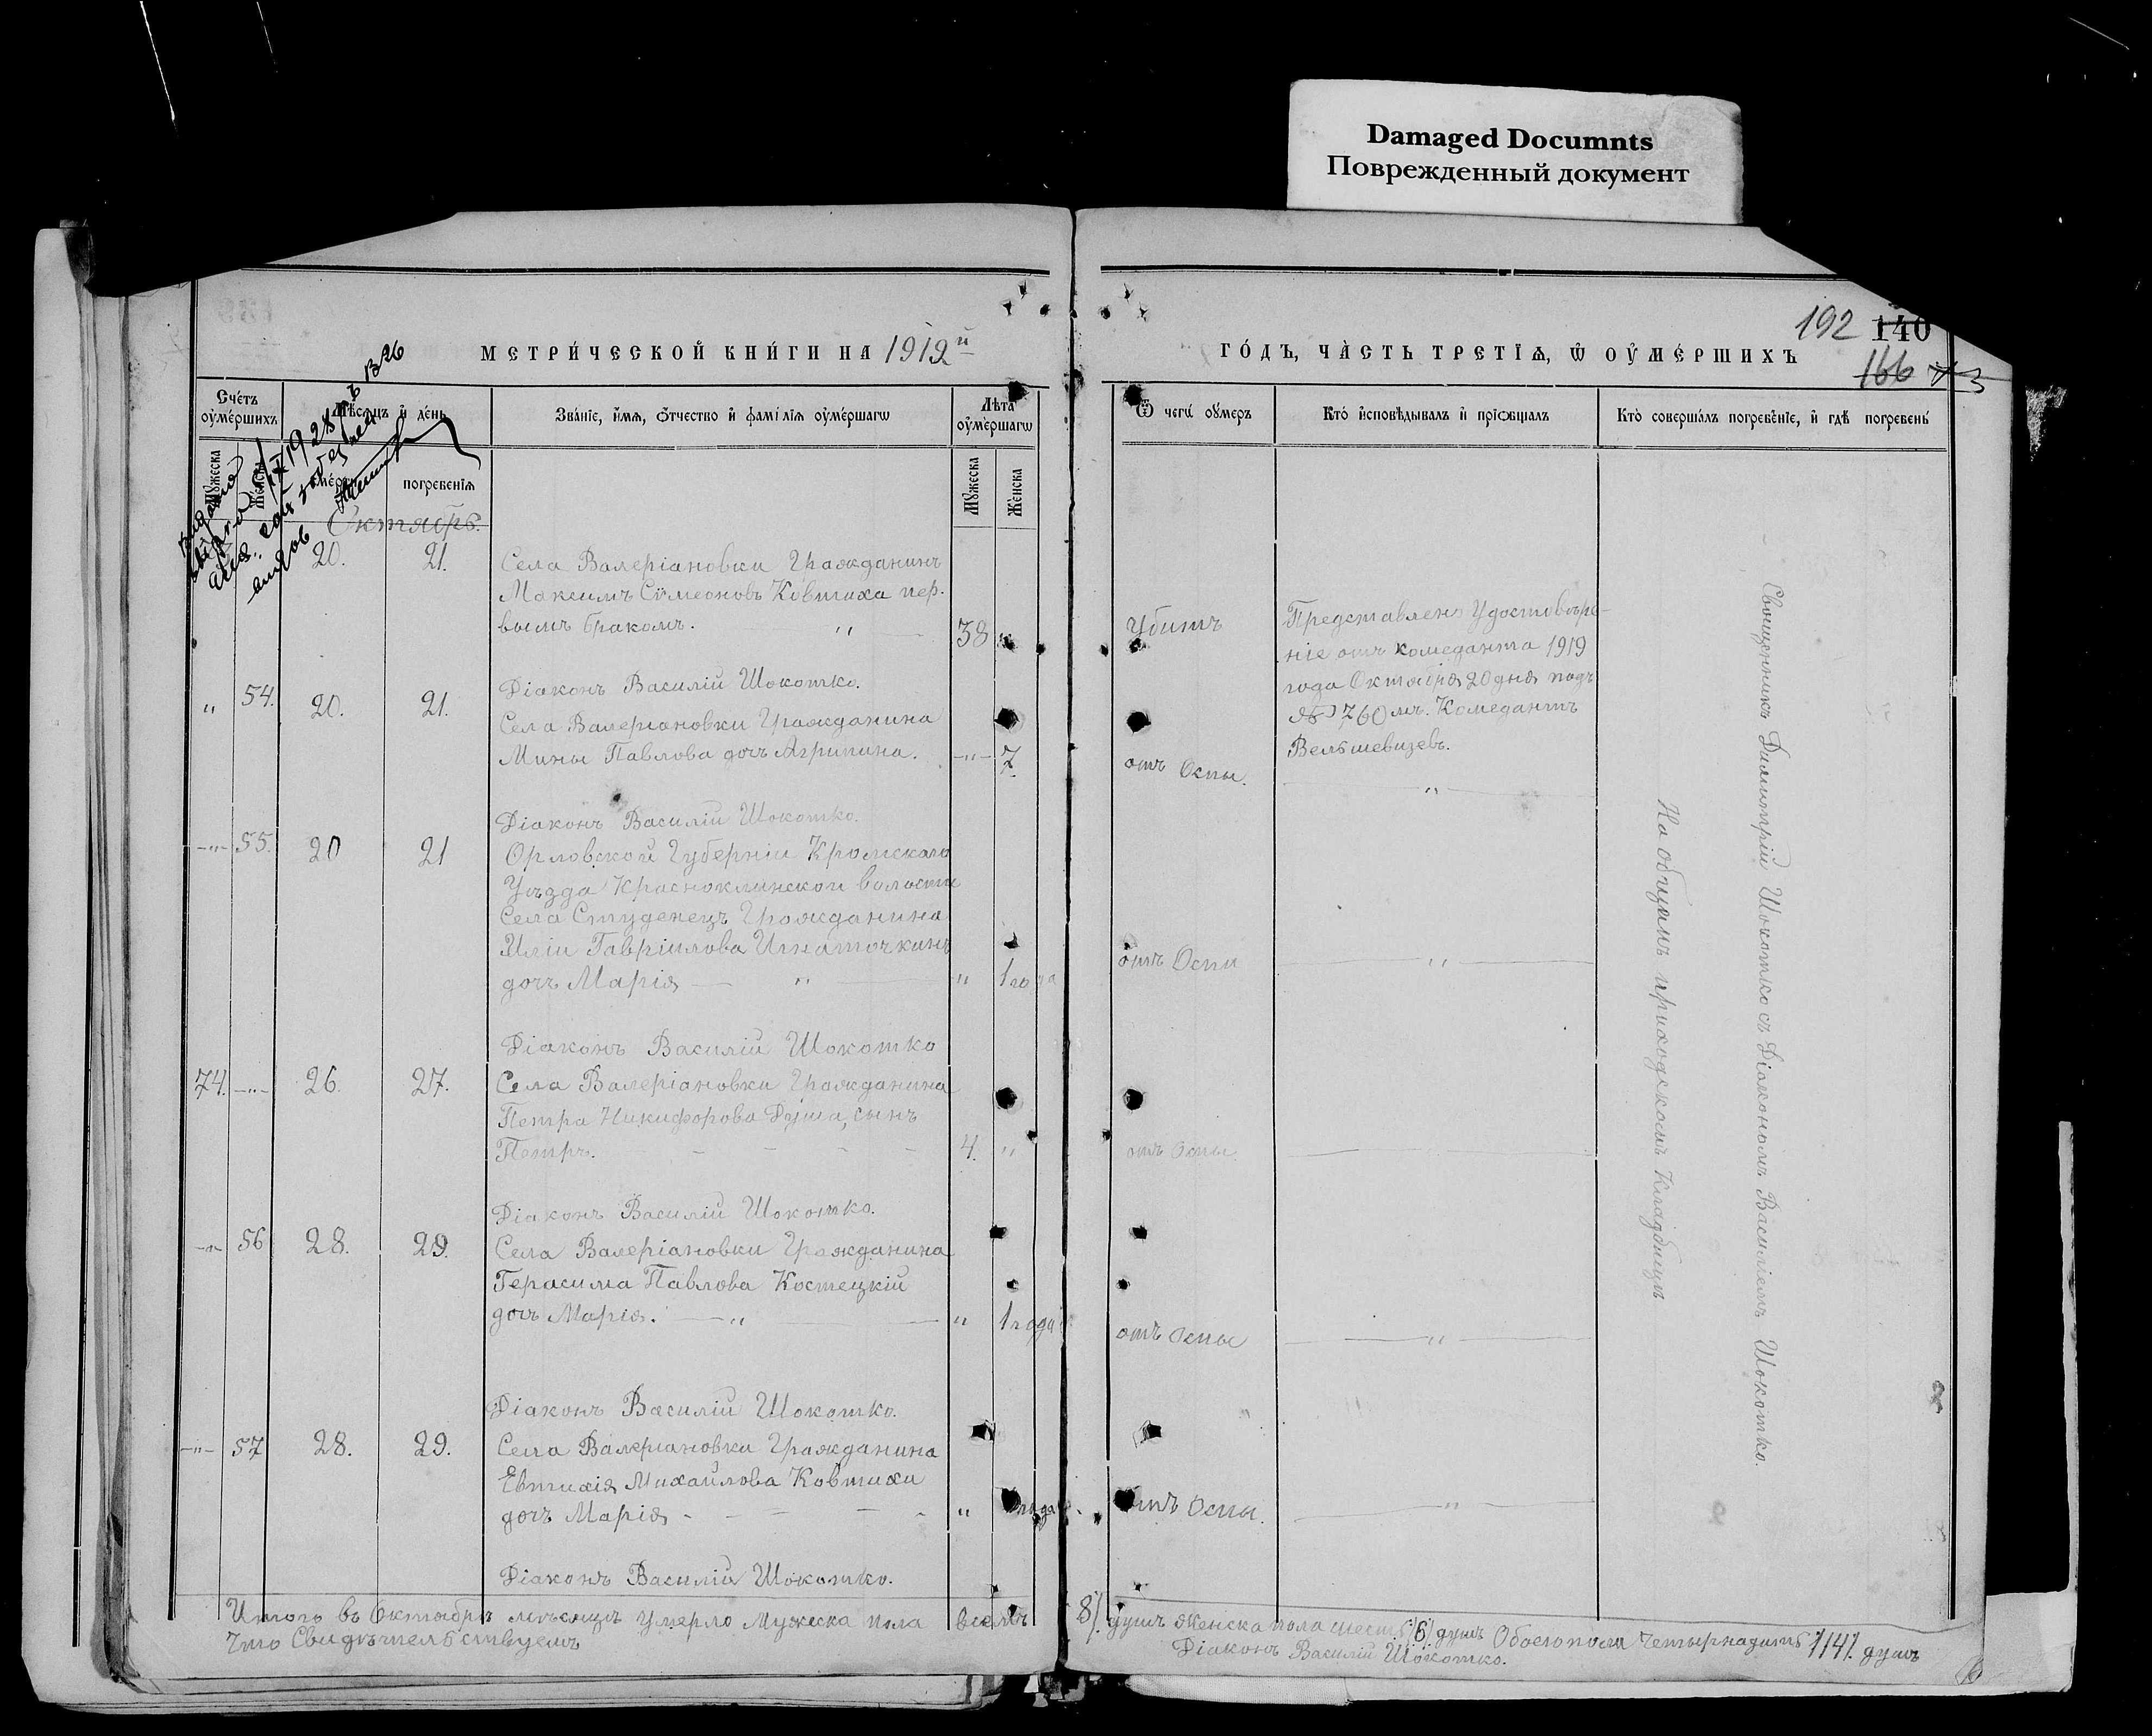 Damaged Documnts
Поврежденный документ
192 140
166
МЕТРИ́ЧЕСКОЙ КНИ́ГИ НА 1919й
ГО́ДЪ, ЧА́СТЬ ТРЕТІѦ, Ѡ ОУ҆МЕ́РШИХЪ
Счетъ оумершихъ
Мѣсяцъ и день
Званіе, имя, отчество и фамілія оумершагѡ
Лѣта оумершагѡ
Ѿ чегѡ оумеръ
Кто исповѣдывалъ и пріѡбщалъ
Кто совершалъ погребеніе, и гдѣ погребены
Мужеска
Женска
погребенія
Мужеска
Женска
Октябрь.
20. 21. Села Валеріановки Гражданинъ
Максимъ Сѵмеоновъ Ковтиха пер-
вымъ бракомъ. " 38 "
Убитъ
Представлено Удостовѣре-
ніе отъ комеданта 1919
года Октября 20 дня подъ
№ 760мъ. Комедантъ
Діаконъ Василій Шокотко.
" 54. 20. 21.
Села Валеріановки Гражданина
Мины Павлова дочь Агрипина. -"- 7
отъ Оспы. "
Діаконъ Василій Шокотко.
-"- 55. 20 21 Орловской Губерніи Кромскаго
Уѣзда Красноклинской волости
Села Студенецъ Гражданина
Иліи Гавріилова Игнаточкинъ
дочь Марія " " 1 года
отъ Оспи "
Діаконъ Василій Шокотко
74. -"- 26. 27. Села Валеріановки Гражданина
Петра Никифорова Душа, сынъ
Петръ. 4. "
отъ Оспы.
Діаконъ Василій Шокотко.
-"- 56 28. 29. Села Валеріановки Гражданина
Герасима Павлова Костецкій
дочь Марія. " " 1 года
отъ Оспы "
Діаконъ Василій Шокотко.
-"- 57 28. 29. Села Валеріановки Гражданина
Евтихія Михайлова Ковтихи
дочь Марія " года
отъ Оспы. "
Діаконъ Василій Шокотко.
Священникъ Димитрій Шокотко съ Діакономъ Василіемъ Шокотко.
На общемъ приходскомъ Кладбищѣ
Итого въ Октябрѣ мѣсяцѣ умерло Мужеска пола всемъ 8/. душъ Женска пола шесть /6/ душъ Обоего пола Четырнадцать /14/. душъ
Что Свидѣтельствуемъ
Діаконъ Василій Шокотко.